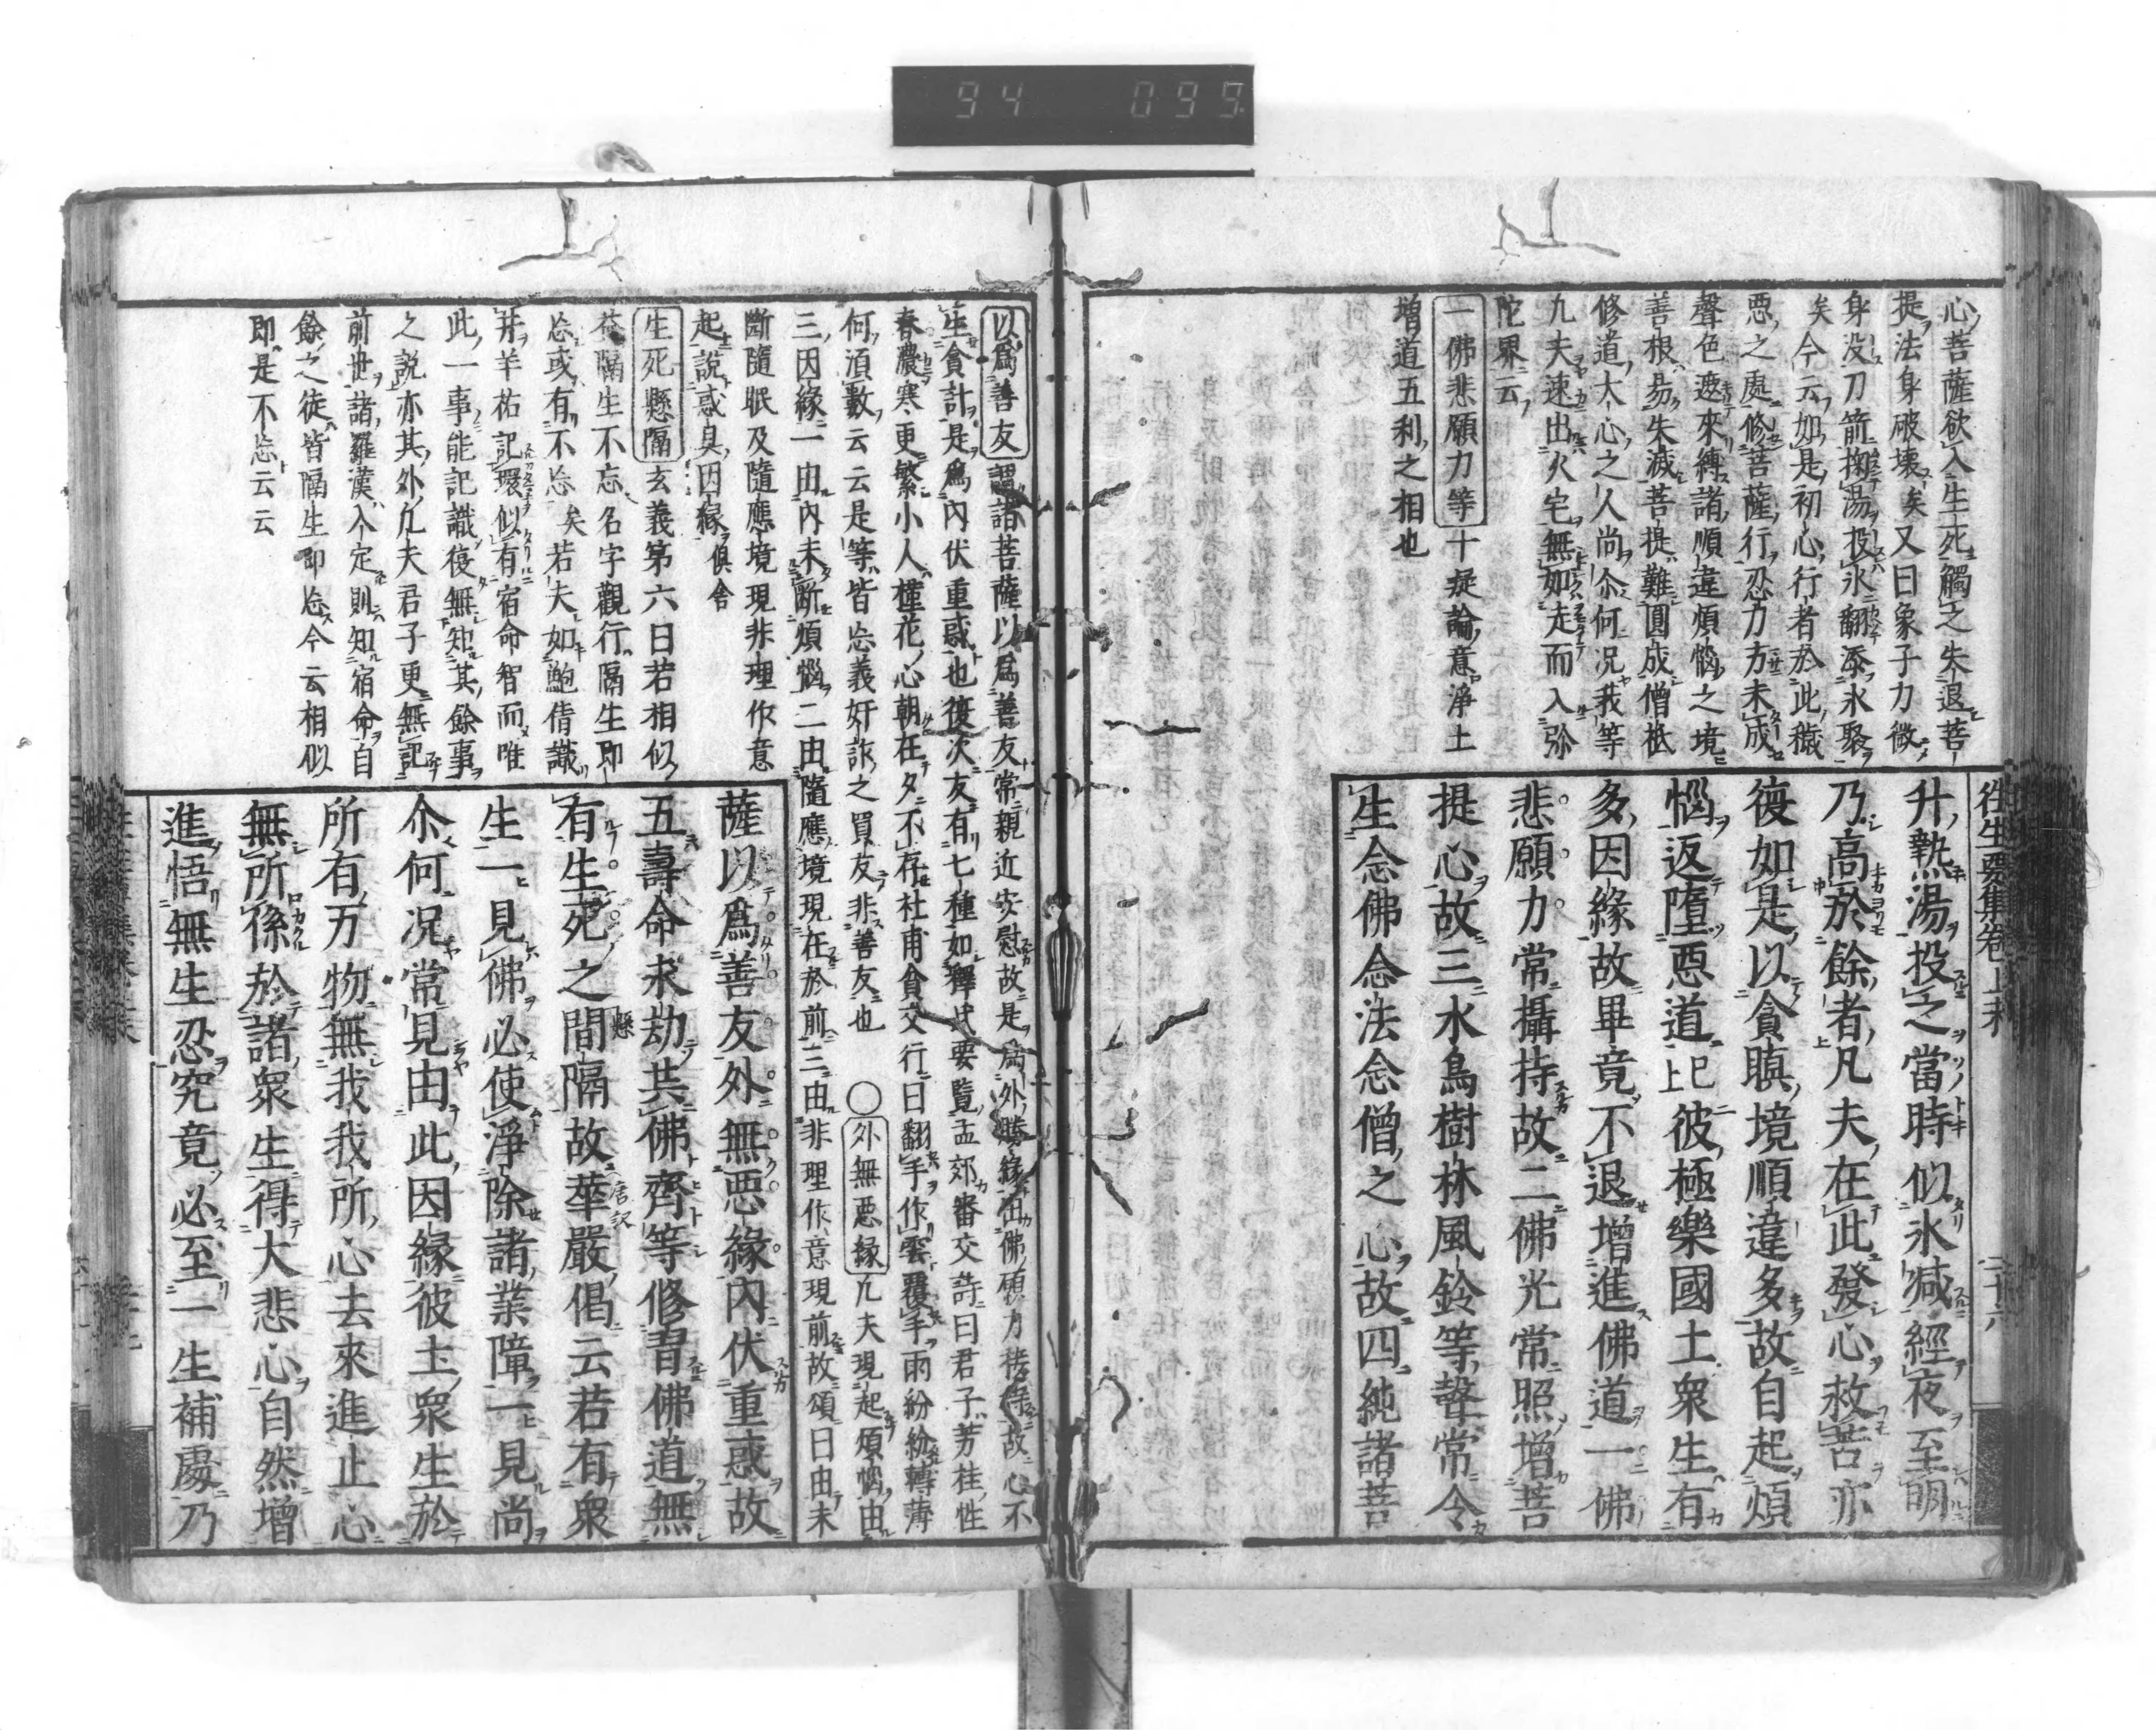 94 099
心菩薩欲入生死觸之失退菩
提法身破壞矣又曰象子力微
身没刀箭掬湯投氷翻添氷聚
矣今云如是初心行者於此穢
惡之處修菩薩行忍力方未成
聲色遮來縛諸順違煩惱之境
善根易失滅菩提難圓成僧祇
修道大心之人尚尒何況我等
凡夫速出火宅無如走而入弥
陀界云
一佛悲願力等 十疑論意淨土
增道五利之相也
往生要集卷上末 三十六
升熱湯投之當時似氷減經夜至明
乃高於餘者凡夫在此發心救苦亦
復如是以貪瞋境順違多故自起煩
惱返墮惡道已上彼極樂國土衆生有
多因緣故畢竟不退增進佛道一佛
悲願力常攝持故二佛光常照增菩
提心故三水鳥樹林風鈴等聲常令
生念佛念法念僧之心故四純諸菩
以爲善友 謂諸菩薩以爲善友常親近安慰故是爲外勝緣佛願力故心不
生貪計是爲內伏重惑也復次友有七種如釋氏要覽孟郊審交詩曰君子芳桂性
春濃寒更繁小人槿花心朝在夕不存杜甫貧交行曰翻手作雲覆手雨紛紛轉薄
何湏數云云是等皆忘義奸詐之買友非善友也 ○外無惡緣 凡夫現起煩惱由
三因緣一由內未斷煩惱二由隨應境現在於前三由非理作意現前故頌曰由未
斷隨眠及隨應境現非理作意
起說惑具因緣俱舍
生死懸隔 玄義第六曰若相似
荅隔生不忘名字觀行隔生即
忘或有不忘矣若夫如鮑倩識
井羊祐記環似有宿命智而唯
此一事能記識復無知其餘事
之說亦其外凡夫君子更無記
前世諸羅漢入定則知宿命自
餘之徒皆隔生即忘今云相似
即是不忘云云
薩以爲善友外無惡緣內伏重惑故
五壽命永劫共佛齊等修習佛道無
有生死之間隔故華嚴偈云若有衆
生一見佛必使淨除諸業障一見尚
尒何況常見由此因緣彼土衆生於
所有万物無我我所心去來進止心
無所係於諸衆生得大悲心自然增
進悟無生忍究竟必至一生補處乃